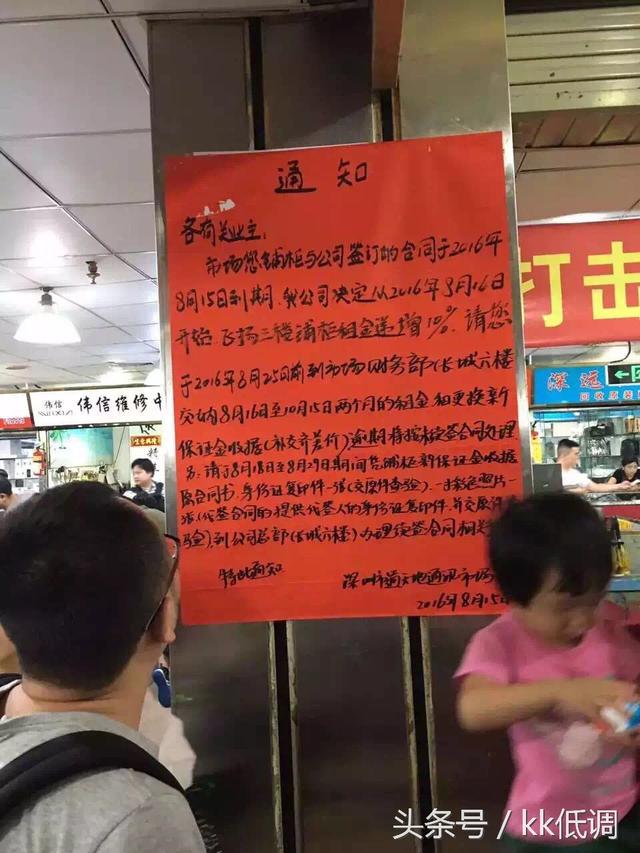 通知
各商业主:
市场您铺柜与公司签订的合同于2016年
8月15日到期,我公司决定从2016年8月16日
开始,飞扬三楼铺柜租金递增10%.请您
于2016年8月25日前到市场财务部(长城六楼
交纳8月16至10月15日两个月的租金和更换新
保证金收据(补交齐差价),逾期将按换签合同处理
另,请于8月18日至8月29日期间凭铺柜新保证金收据
原合同书、身份证复印件一张(交原件查验)、一寸彩色照片一
张(代签合同的提供代签人的身份证复印件并交原件
验),到公司总部(长城六楼)办理续签合同相关
特此通知
深圳市通天地通讯市场
2016年8月15日
打击
伟信
伟信维修中
深远
回收原装
头条号 / kk低调